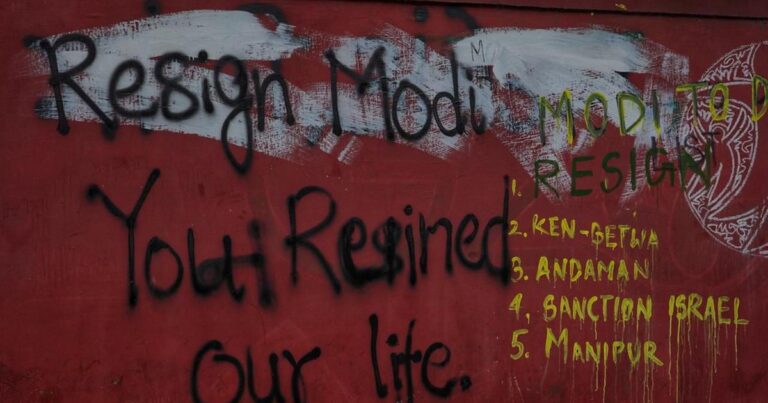 Resign Modi
You Resined
our life.
M
MODI TO D
1. RESIGN
2. KEN-BETWA
3. ANDAMAN
4. SANCTION ISRAEL
5. MANIPUR